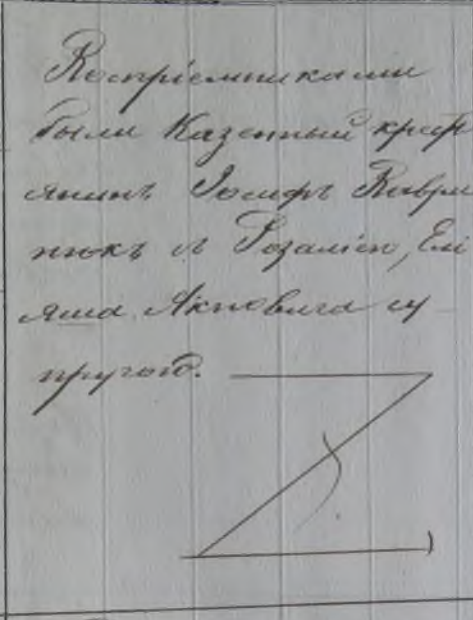 Воспріемниками
были Казенный крест
янинъ Іосифъ Коври
нюкъ съ Розаліею, Ели
яша Акновича су
пругою.